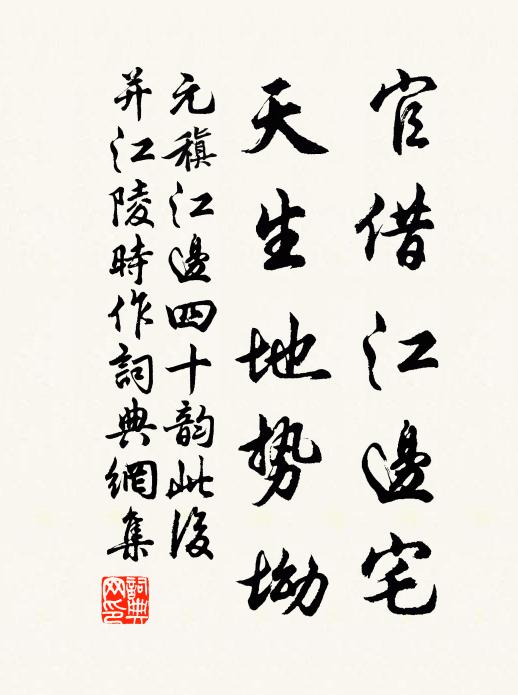 官借江邊宅
天生地势坳
元稹江邊四十韵此後
并江陵時作詞典網集
詞典網印